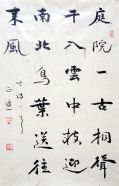 庭院一古桐聳
干入雲中枝迎
南北鳥葉送往
来風